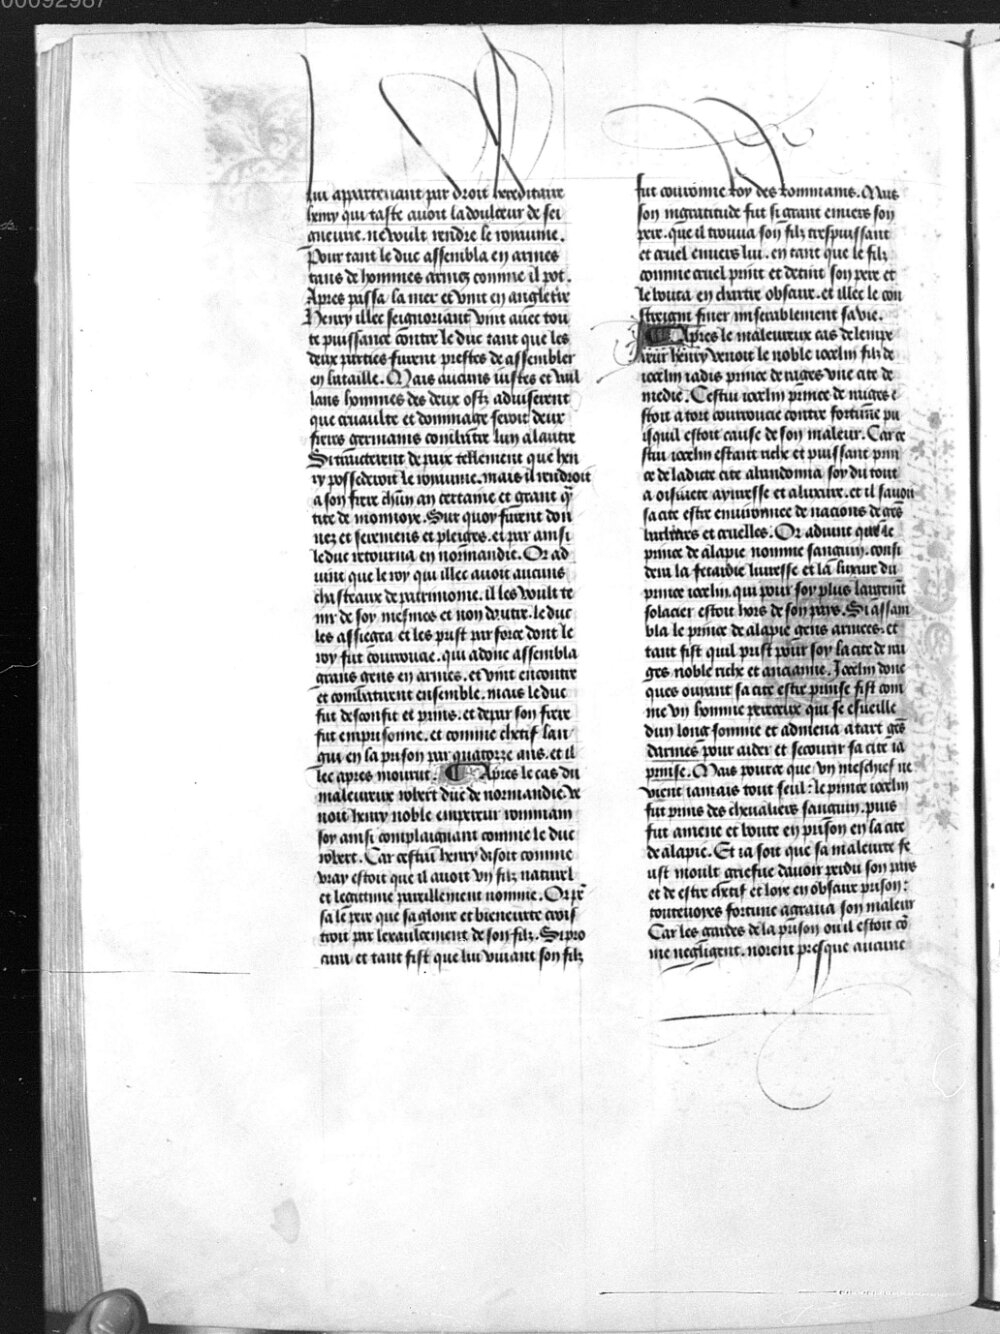 00092987
lui appartenant par droit hereditaire
henry qui taste auoit la doulceur de sei
gneurie. ne voult rendre le royaume.
Pour tant le duc assembla en armes
tans de hommes armez comme il pot.
Apres passa la mer et vint en angleterre
Henry illec seignoriant vint auec tou
te puissance contre le duc tant que les
deux parties furent prestes de assembler
en bataille. Mais aucuns iustes et vail
lans hommes des deux ostz aduiserent
que cruaulte et dommage seroit deux
freres germains combatre lun a lautre
Si traicterent de paix tellement que hen
ry possederoit le royaume. mais il rendroit
a son frere chūn an certaine et grant q̄
tite de monnoye. Sur quoy furent don
nez et seremens et pleiges. et par ainsi
le duc retourna en normandie. Or ad
uint que le roy qui illec auoit aucuns
chasteaux de patrimoine. il les voult te
nir de soy mesmes et non dautre. le duc
les assiegea et les prist par force dont le
roy fut courouce. qui adonc assembla
grans gens en armes. et vint encontre
et combatirent ensemble. mais le duc
fut desconfit et prins. et depar son frere
fut emprisonne. et comme chetif lan
gui en la prison par quatorze ans. et il
lec apres mourut. Apres le cas du
maleureux robert duc de normandie ve
noit henry noble empereur rommain
soy ainsi complaignant comme le duc
robert. Car cestui henry disoit comme
vray estoit que il auoit vn filz naturel
et legitime pareillement nomme. Or pē
sa le pere que sa gloire et bieneurte crois
troit par lexaulcement de son filz. Si pro
cura et tant fist que lui viuant son filz
fut couronne roy des rommains. Mais
son ingratitude fut si grant enuers son
pere. que il trouua son filz trespuissant
et cruel enuers lui. en tant que le filz
comme cruel print et detint son pere et
le bouta en chartre obscure. et illec le con
streigni finer miserablement sa vie.
Apres le maleureux cas de lempe
reur henry venoit le noble iocelin filz de
iocelin iadis prince de rages vne cite de
medie. Cestui iocelin prince de rages e
stoit a tort courroucie contre fortune pu
isquil estoit cause de son maleur. Car ce
stui iocelin estant riche et puissant prin
ce de ladicte cite abandonna soy du tout
a oisiuete a yuresse et a luxure. et il sauoit
sa cite estre enuironnee de nacions de gēs
barbares et cruelles. Or aduint que le
prince de alapie nomme sanguin. consi
dera la fetardie liuresse et la luxure du
prince iocelin. qui pour soy plus largemēt
solacier estoit hors de son pays. Si assam
bla le prince de alapie gens armees. et
tant fist quil prist pour soy la cite de ra
ges noble riche et ancienne. Iocelin donc
ques ouyant sa cite estre prinse fist com
me vn homme pereceux qui se esueille
dun long somme et admena a tart gēs
darmes pour aider et secourir sa cite ia
prinse. Mais pource que vn meschief ne
vient iamais tout seul: le prince iocelin
fut prins des cheualiers sanguin. puis
fut amene et boute en prison en la cite
de alapie. Et ia soit que sa maleurte fe
ust moult griefue dauoir perdu son pays
et de estre chetif et loye en obscure prison:
toutesuoyes fortune agraua son maleur
Car les gardes de la prison ou il estoit cō
me negligent. norent presque aucune